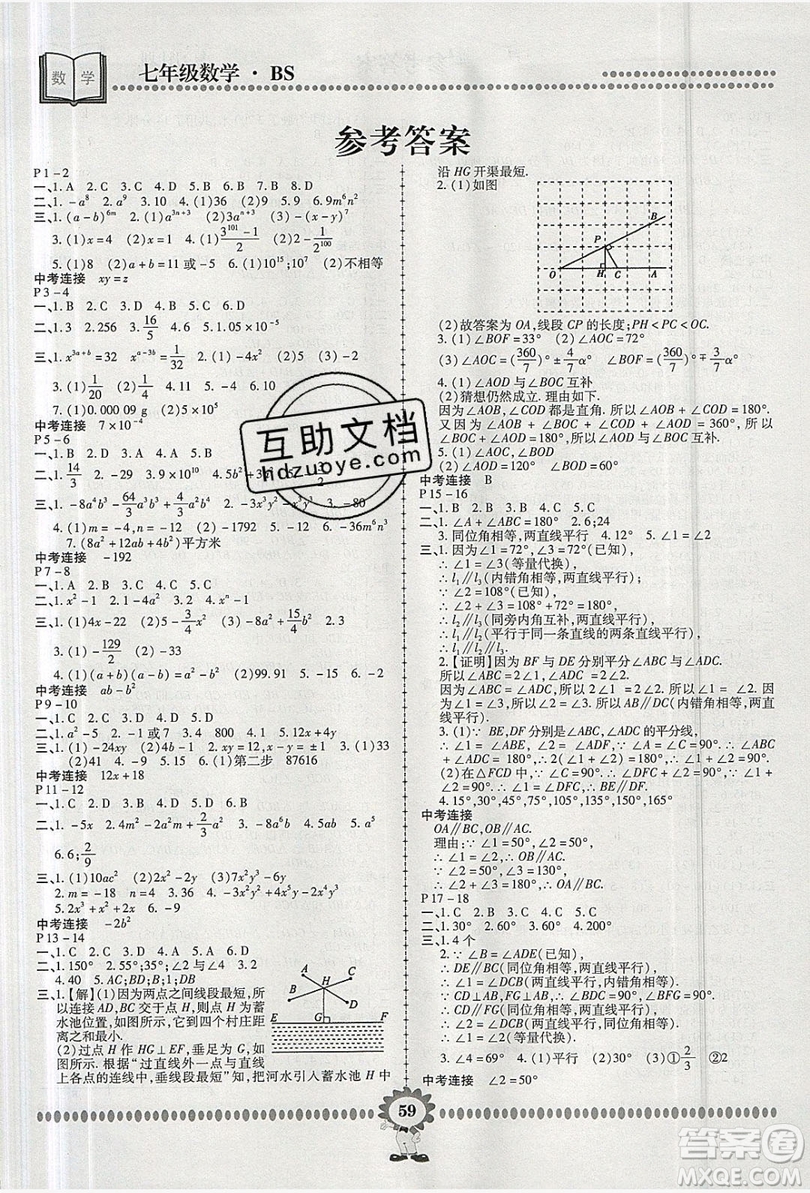 数 学
七年级数学 · BS
参考答案
P 1 - 2
一、1. A 2. B 3. C 4. D 5. A 6. B 7. B 8. D
二、1. -a⁸ 2. -2 3. 10 4. (1)36 (2)9 5. -6m²n²
三、1. (1)(a-b)⁶ᵐ (2)a³ⁿ⁺³ (2)3aⁿ⁺³ (3)-(x-y)⁷
3. (1)x=4 (2)x=1 4. (1)(3¹⁰¹-1)/2 (2)2-1/2¹⁰⁰
5. (1)8 (2)a+b=11或-5 6. (1)10¹⁵;10⁷ (2)不相等
中考连接 xy=z
P 3 - 4
一、1. B 2. B 3. A 4. C
二、1. 3 2. 256 3. 16/5 4. 3 5. 1.05×10⁻⁵
三、1. x³ᵃ⁺ᵇ= xᵃ⁻³ᵇ=1/32 2. (1)-4x² (2)-2
3. (1)1/20 (2)1/4
7. (1)0.000 09 g
中考连接 7×10⁻⁴
P 5 - 6
二、1. 14/3 2. -29
三、1. -8a⁴b³-64/3a³b³+a²b² 2. -3 3. -80
4. (1)m=-4,n=-12 (2)-1792
7. (8a²+12ab+4b²)平方米
中考连接 -192
P 7 - 8
一、1. D 2. C 3. A 4. D
二、1. x²-1 2. 1-4a² 3. -15 4. 6
三、1. (1)4x-22 (2)-5-3/4x² (3)-8a²+15/4b²
3. (1)-129/2
4. (1)(a+b)(a-b)=a²-b² (2)99.91 5. (1)x¹⁰-1
中考连接 ab-b²
P 9 - 10
一、1. C 2. B 3. C 4. A
二、1. a²-5 2. -1或7 3. 4 800 4. 2.10x+4
三、1. (1)-24xy (2)4xy-10y² 3. -1 3. (1)33
(2)41 (3)90 4. 19 5. (1)第二步 87616
中考连接 12x+18
P 11 - 12
一、1. C 2. D 3. D 4. B
二、1. -5x 2. 4m³-am²+2/3a² 3. 8a-b 4. 3 5. a⁵
6. 6;2/9
三、1. (1)10ac² (2)-2b²-1 (3)7x²y²-5xy-y
2. m=4,n=3 3. x=-5 4. -3x⁴y²+2x³y³-1/2x²y⁴
5. 2x³+x²-3x 6. -9
中考连接 -2b²
P 13 - 14
一、1. C 2. C 3. D 4. C
二、1. 150° 2. 55°;35° 3. ∠1=∠2=∠4
4. 40 5. AC;BD;B;D
三、1.【解】(1)因为两点之间线段最短,所
以连接 AD,BC 交于点 H,则点 H 为蓄
水池位置,如图所示,它到四个村庄距
离之和最小.
(2)过点 H 作 HG⊥EF,垂足为 G,如
图所示. 根据“过直线外一点与直线
上各点的连线中,垂线段最短”知,把河水引入蓄水池 H 中
A C H B D E G F
沿 HG 开渠最短.
2. (1)如图
O P H C A B
(2)故答案为 OA,线段 CP 的长度;PH<PC<OC.
3. (1)∠BOF=33° (2)∠AOC=72°
(3)∠AOC=(360/7)°±4/7α° ∠BOF=(360/7)°∓3/7α°
4. (1)∠AOD 与∠BOC 互补
(2)猜想仍然成立. 理由如下.
因为∠AOB,∠COD 都是直角. 所以∠AOB+∠COD=180°.
又因为∠AOB+∠BOC+∠COD+∠AOD=360°,所以
∠BOC+∠AOD=180°. 所以∠AOD 与∠BOC 互补.
5. (1)∠AOC,∠BOD
(2)∠AOD=120° ∠BOF=60°
中考连接 B
P 15 - 16
一、1. B 2. B 3. C 4. B
二、1. ∠A+∠ABC=180° 2. 64°
3. 同位角相等,两直线平行 4. 12° 5. ∠1=∠2
三、1. 因为∠1=72°,∠3=72°(已知),
∴∠1=∠3(等量代换),
∴l₁∥l₃(内错角相等,两直线平行);
∵∠2=108°(已知),
∴∠2+∠3=108°+72°=180°,
∴l₂∥l₃(同旁内角互补,两直线平行),
∴l₁∥l₂(平行于同一条直线的两条直线平行).
2.【证明】因为 BF 与 DE 分别平分∠ABC 与∠ADC.
所以∠ABC=2∠1,∠ADC=2∠2,
因为∠ABC=∠ADC,所以∠1=∠2,
因为∠1=∠3,所以∠2=∠3. 所以 AB∥DC(内错角相等,两直
线平行).
3. (1)∵BE,DF 分别是∠ABC,∠ADC 的平分线,
∴∠1=∠ABE,∠2=∠ADF,∵∠ADC+∠ABC=180°,
∴2(∠1+∠2)=180°,∴∠1+∠2=90°;
(2)在△FCD 中,∵∠C=90°,∴∠DFC+∠2=90°,∵∠1+
∠2=90°,∴∠1=∠DFC,∴BE∥DF.
4. 15°,30°,45°,75°,105°,135°,150°,165°
中考连接
OA∥BC,OB∥AC.
理由:∵∠1=50°,∠2=50°,
∴∠1=∠2,∴OB∥AC,
∵∠2=50°,∠3=130°,
∴∠2+∠3=180°,∴OA∥BC.
P 17 - 18
一、1. C 2. B 3. D 4. C
二、1. 30° 2. 60° 3. 80° 4. 90° 5. 70°
三、1. 4 个
2. ∵∠B=∠ADE(已知),
∴DE∥BC(同位角相等,两直线平行),
∴∠1=∠DCB(两直线平行,内错角相等),
∵CD⊥AB,FG⊥AB,
∴CD∥FG(同位角相等,两直线平行),
∴∠2=∠DCB(两直线平行,同位角相等),
∴∠1=∠2.
3. ∠4=69° 4. (1)平行 (2)30 (3)①2/3 ②2
中考连接 ∠2=50°
59
互助文档
hdzuoye.com
答案圈
MXQE.COM